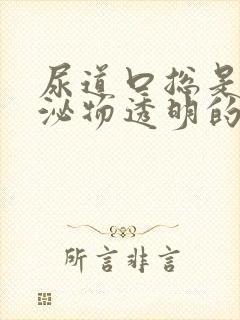 尿道口总是
泌物透明的
所言非言